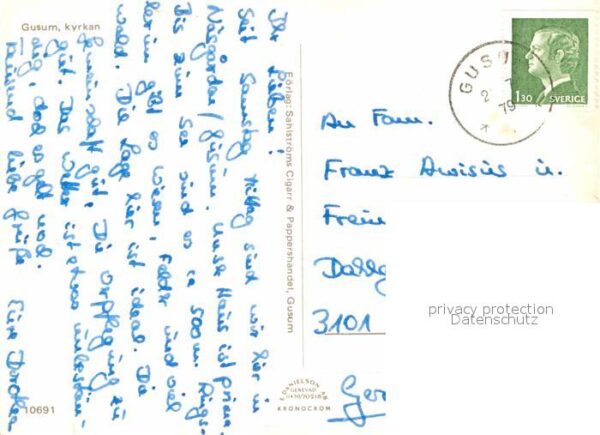 Gusum, kyrkan
Ihr Lieben!
Seit Samstag Mittag sind wir hier in
Näsgården/Gusum. Unser Haus ist prima.
Bis zum See sind es ca 500 m. Rings-
herum gibt es Wiesen, Felder und viel
Wald. Die Lage hier ist ideal. Die
Gemeinschaft gut, Die Verpflegung zu
gut. Das Wetter ist etwas unbestän-
dig, doch es geht noch.
Tausend liebe Grüße Eure Dorothea
10691
Förlag: Sahlströms Cigarr & Pappershandel, Gusum
E. DANIELSON AB
GENEVAD
KRONOCROM
GUSUM
2 7
79
1.30 SVERIGE
An Fam.
Franz Awisus u.
3101
privacy protection
Datenschutz